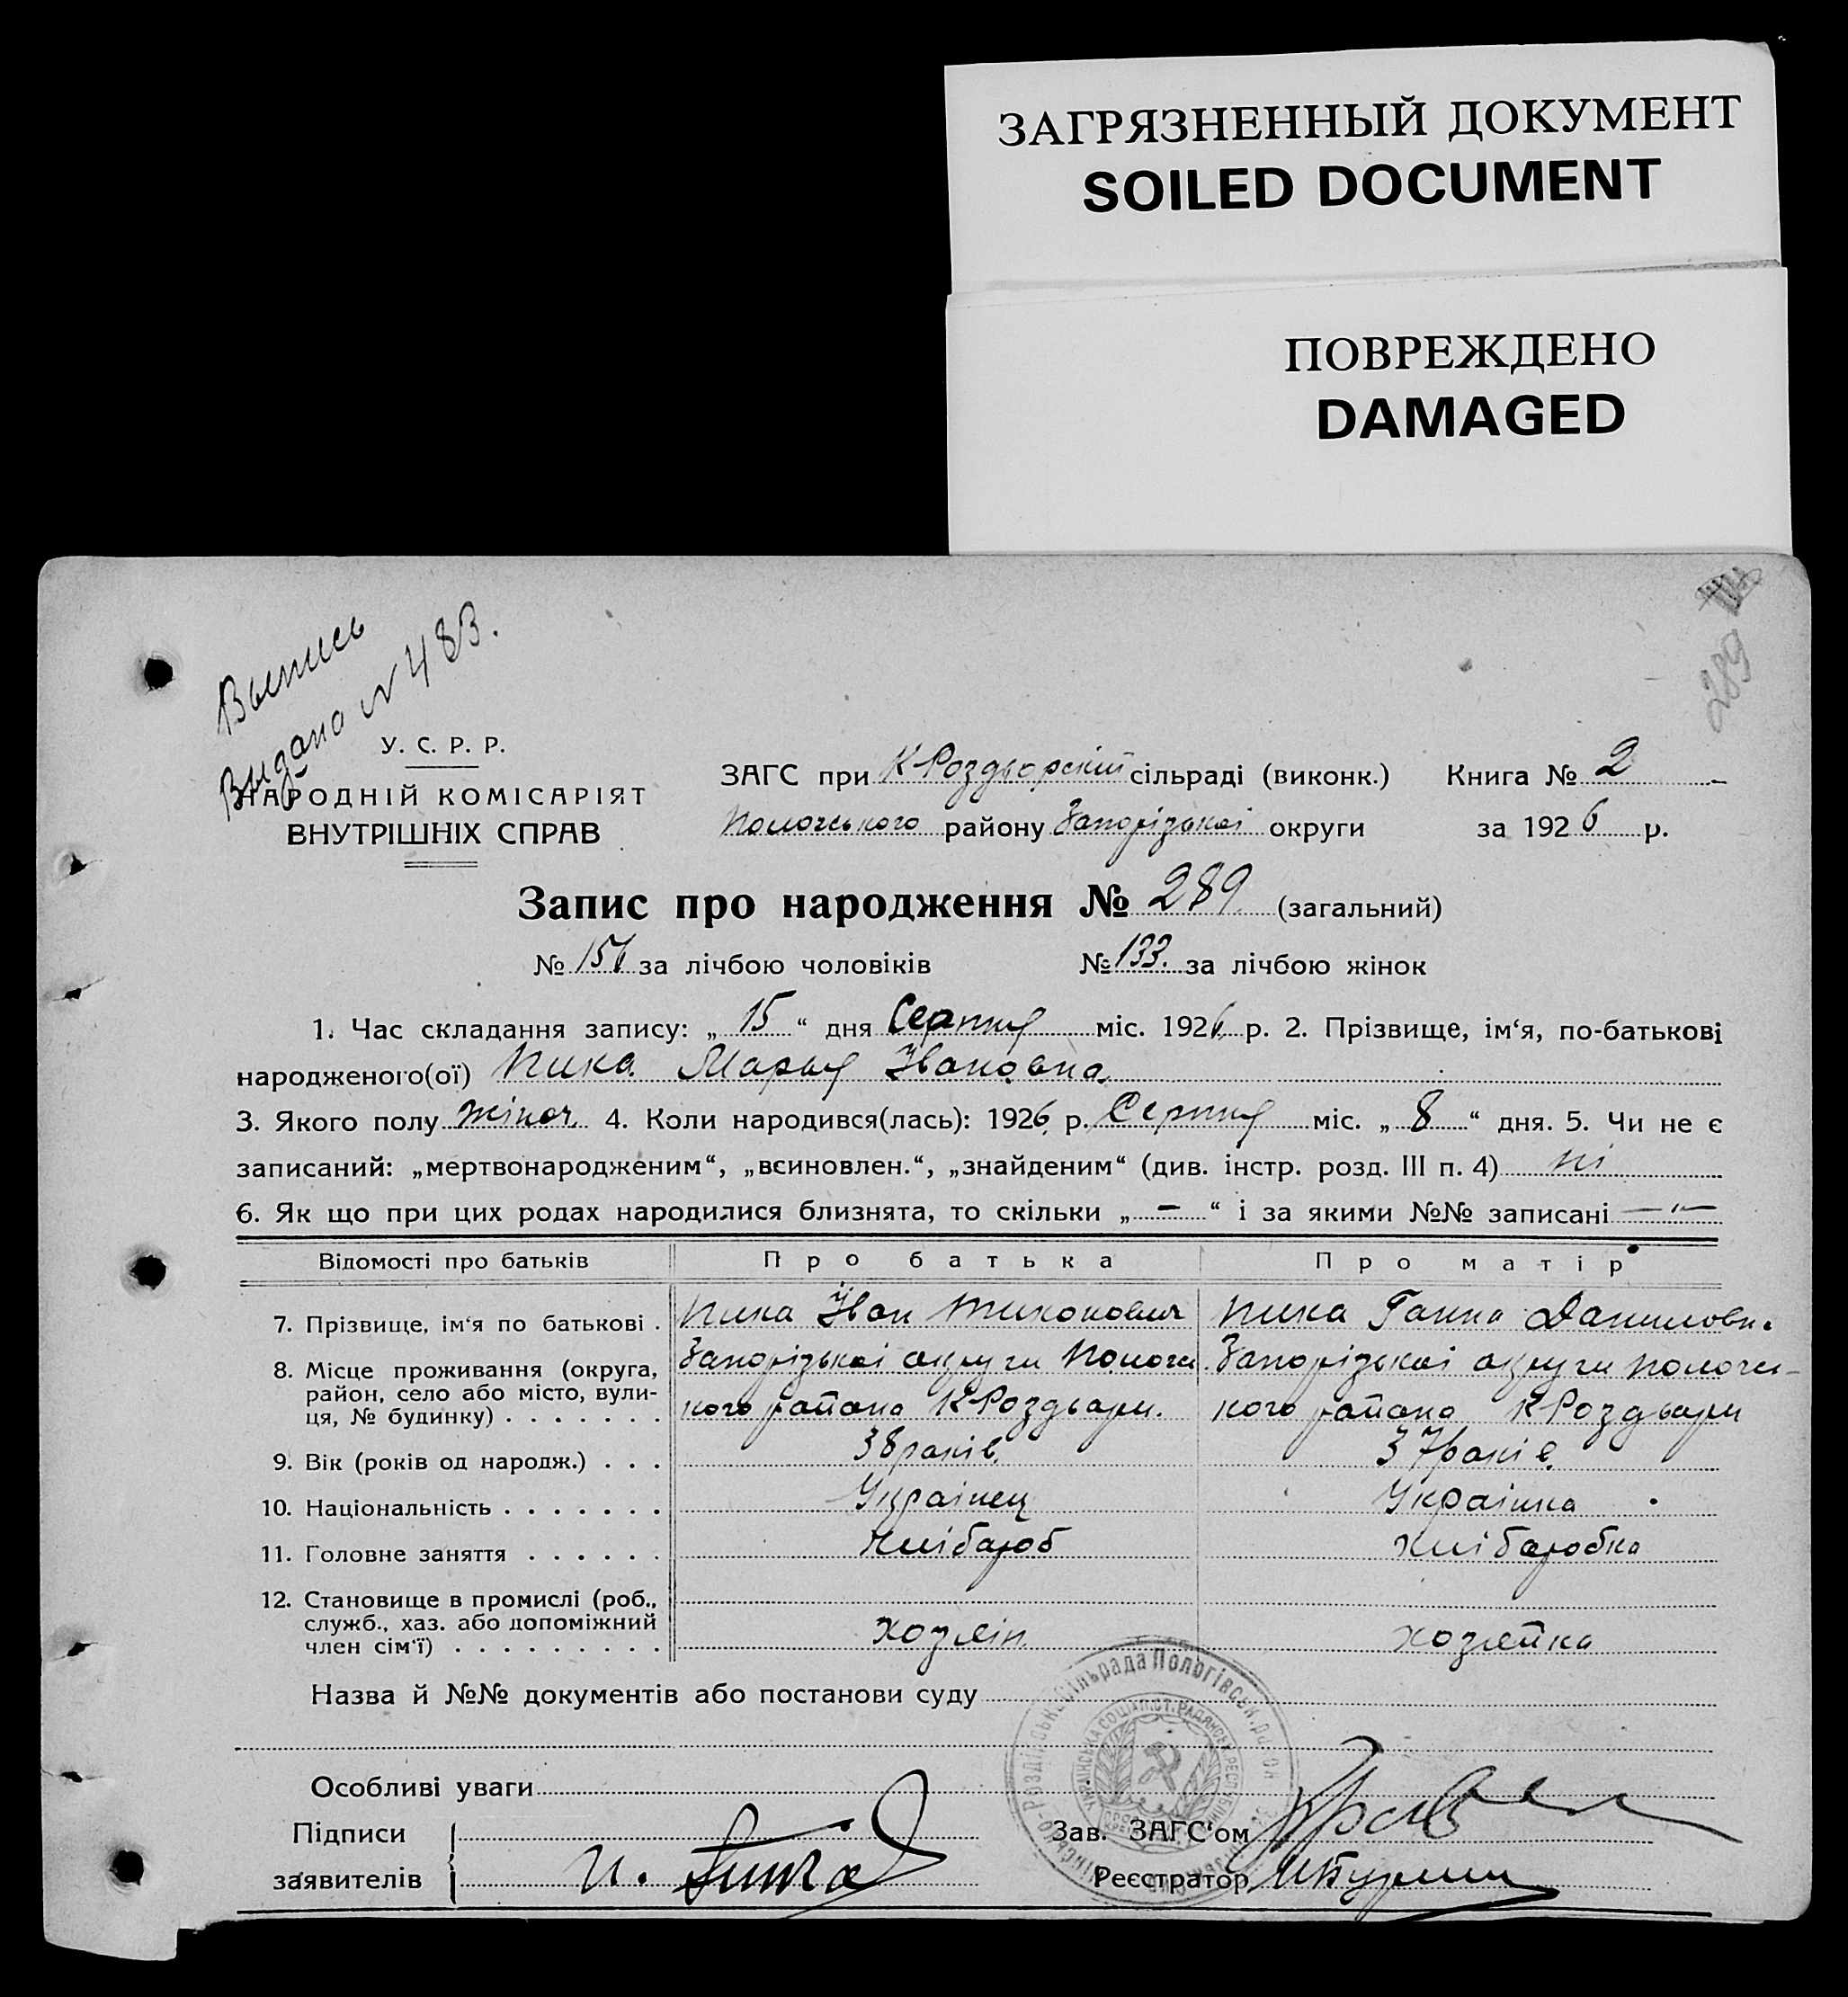 ЗАГРЯЗНЕННЫЙ ДОКУМЕНТ
SOILED DOCUMENT
ПОВРЕЖДЕНО
DAMAGED
289
Выпись
Выдана N 483.
У. С. Р. Р.
НАРОДНІЙ КОМІСАРІЯТ
ВНУТРІШНІХ СПРАВ
ЗАГС при К Роздорскій сільраді (виконк.) Книга № 2
Пологського району Запорізькоі округи за 1926 р.
Запис про народження № 289 (загальний)
№ 156 за лічбою чоловіків № 133. за лічбою жінок
1. Час складання запису: „ 15 “ дня Серпня міс. 1926 р. 2. Прізвище, ім‘я, по-батькові
народженого(ої) Пика Марья Івановна
3. Якого полу жіноч. 4. Коли народився(лась): 1926 р. Серпня міс. „ 8 “ дня. 5. Чи не є
записаний: „мертвонародженим“, „всиновлен.“, „знайденим“ (див. інстр. розд. III п. 4) ні
6. Як що при цих родах народилися близнята, то скільки „ – “ і за якими №№ записані –"–
Відомості про батьків Про батька Про матір
7. Прізвище, ім‘я по батькові . Пика Іван Тихонович Пика Ганна Даниловн.
8. Місце проживання (округа, Запорізькоі округи Пологсь Запорізькоі округи пологсь-
район, село або місто, вули-
ця, № будинку) . . . . . . . кого района К Роздоари. кого района К Роздоари
9. Вік (років од народж.) . . . 38 років. 37 років.
10. Національність . . . . . . . Украінец Украінка
11. Головне заняття . . . . . . Хлібароб хлібаробка
12. Становище в промислі (роб.,
служб., хаз. або допоміжний
член сім‘ї) . . . . . . . . . хозяін. хозяйка
Назва й №№ документів або постанови суду
Особливі уваги
Підписи
заявителів И. Пика
Зав. ЗАГС‘ом
Реєстратор